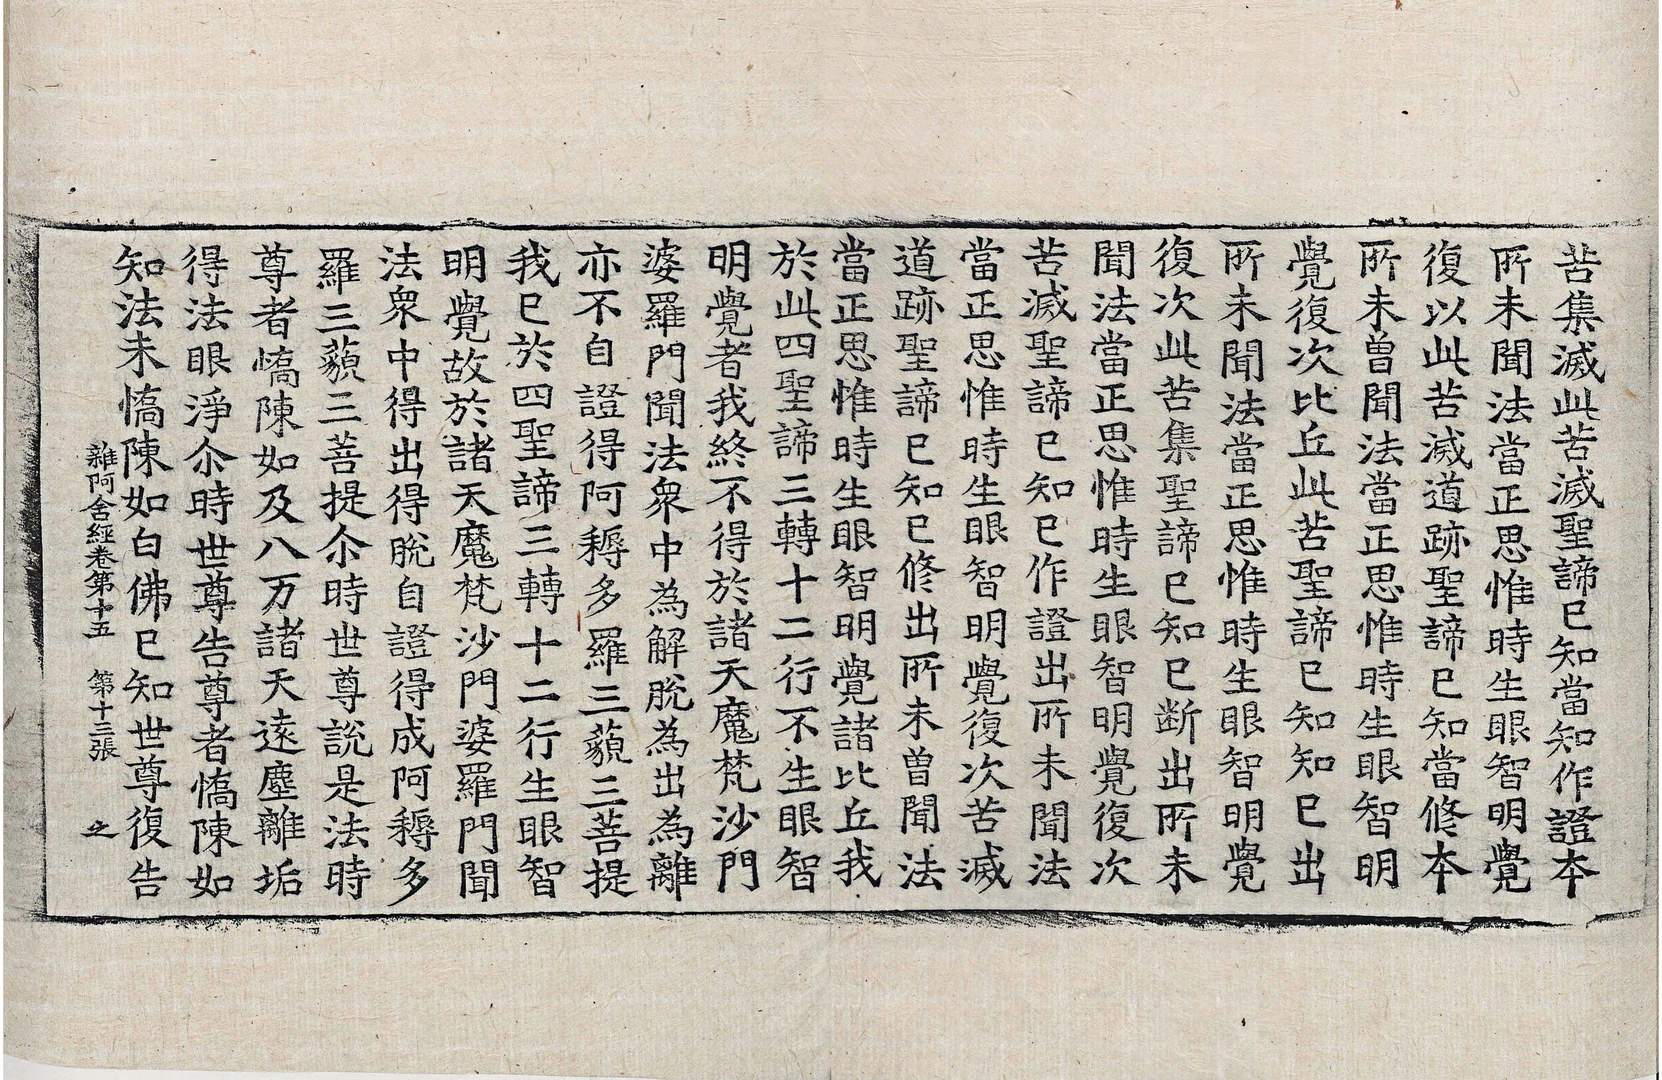 苦集滅此苦滅聖諦已知當知作證本
所未聞法當正思惟時生眼智明覺
復以此苦滅道跡聖諦已知當修本
所未曽聞法當正思惟時生眼智明
覺復次比丘此苦聖諦已知知已出
所未聞法當正思惟時生眼智明覺
復次此苦集聖諦已知已断出所未
聞法當正思惟時生眼智明覺復次
苦滅聖諦已知已作證出所未聞法
當正思惟時生眼智明覺復次苦滅
道跡聖諦已知已修出所未曽聞法
當正思惟時生眼智明覺諸比丘我
於此四聖諦三轉十二行不生眼智
明覺者我終不得於諸天魔梵沙門
婆羅門聞法衆中為解脫為出為離
亦不自證得阿耨多羅三藐三菩提
我已於四聖諦三轉十二行生眼智
明覺故於諸天魔梵沙門婆羅門聞
法衆中得出得脫自證得成阿耨多
羅三藐三菩提尒時世尊說是法時
尊者憍陳如及八万諸天遠塵離垢
得法眼淨尒時世尊告尊者憍陳如
知法未憍陳如白佛已知世尊復告
雜阿含經卷第十五 第十三張 之